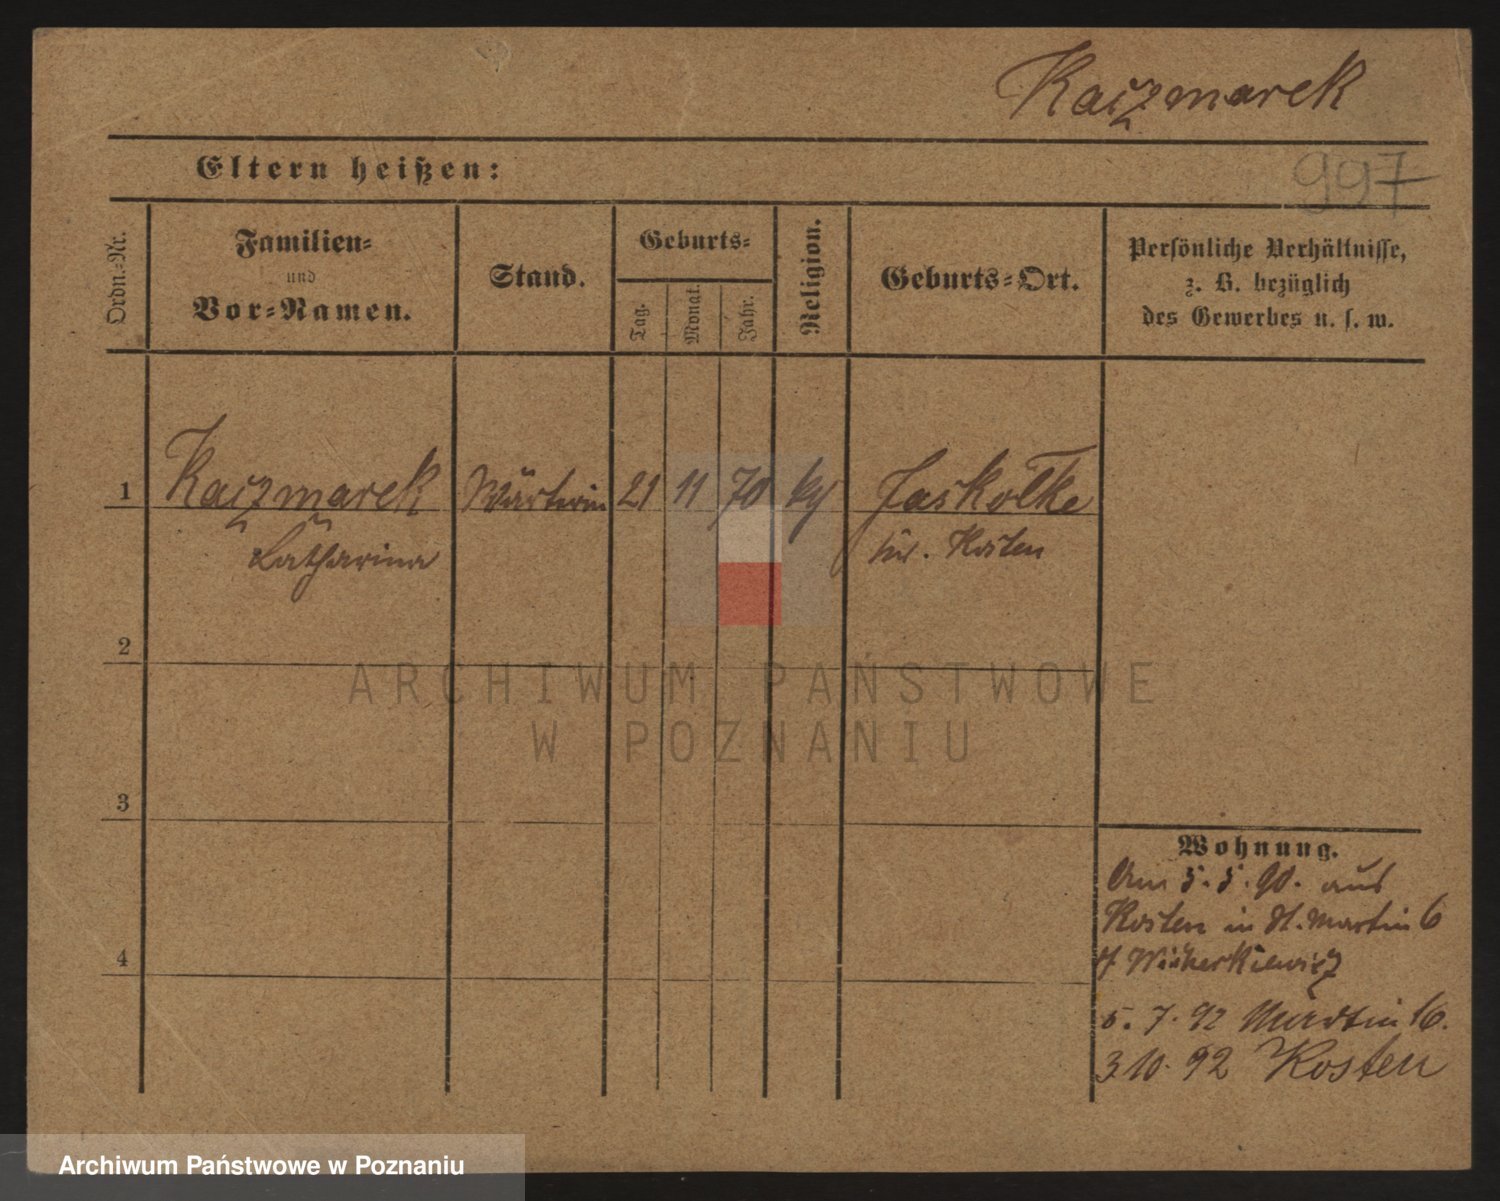 Kaczmarek
Eltern heißen:
997
Ordn.-Nr.
Familien-
und
Vor-Namen.
Stand.
Geburts-
Tag.
Monat.
Jahr.
Religion.
Geburts-Ort.
Persönliche Verhältnisse,
z. B. bezüglich
des Gewerbes u. s. w.
1
Kaczmarek
Wärterin
21
11
70
Jaskolke
Catharina
Kr. Kosten
2
3
4
Wohnung.
Am 5.5.90. aus
Kosten in St. Martin 6
Wicherkiewicz
5.7.92 Martin 16.
3 10. 92 Kosten
ARCHIWUM PAŃSTWOWE
W POZNANIU
Archiwum Państwowe w Poznaniu